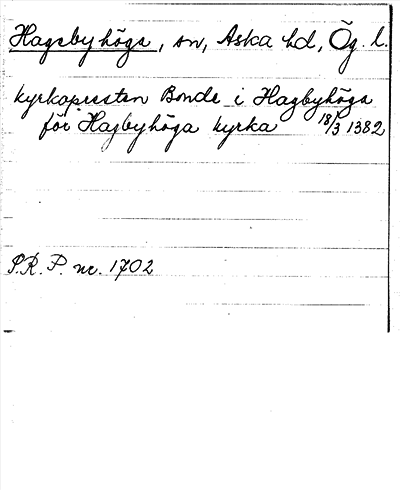 Hagebyhöga, sn, Aska hd, Ög. l.
kyrkapresten Bonde i Hagbyhöga
för Hagbyhöga kyrka 18/3 1382
P.R.P. nr. 1702